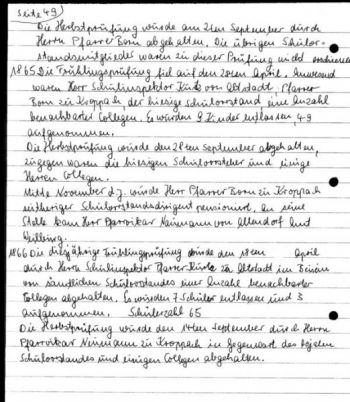 Seite 49)
Die Herbstprüfung wurde am 21ten September durch
Herrn Pfarrer Born abgehalten. Die übrigen Schulvor-
standsmitglieder waren zu dieser Prüfung nicht erschienen
1865 Die Frühlingsprüfung fiel auf den 20ten April. Anwesend
waren Herr Schulinspektor Kirk von Altstadt, Pfarrer
Born zu Kroppach, der hiesige Schulvorstand, eine Anzahl
benachbarter Collegen. Es wurden 9 Kinder entlassen, 49
aufgenommen.
Die Herbstprüfung wurde den 28ten September abgehalten,
zugegen waren die hiesigen Schulvorsteher und einige
Herren Collegen.
Mitte November d. J. wurde Herr Pfarrer Born zu Kroppach
seitheriger Schulvorstandsdirigent pensioniert. An seine
Stelle kam Herr Pfarrvikar Neumann von Altendorf Amt
1866 Die diesjährige Frühlingsprüfung wurde den 18ten April
durch Herrn Schulinspektor Pfarrer Kirk zu Altstadt im Beisein
von sämtlichen Schulvorstandes einer Anzahl benachbarter
Collegen abgehalten. Es wurden 7 Schüler entlassen und 3
aufgenommen. Schülerzahl 65
Die Herbstprüfung wurde den 14ten September durch Herrn
Pfarrvikar Neumann zu Kroppach in Gegenwart des hiesigen
Schulvorstandes und einigen Collegen abgehalten.